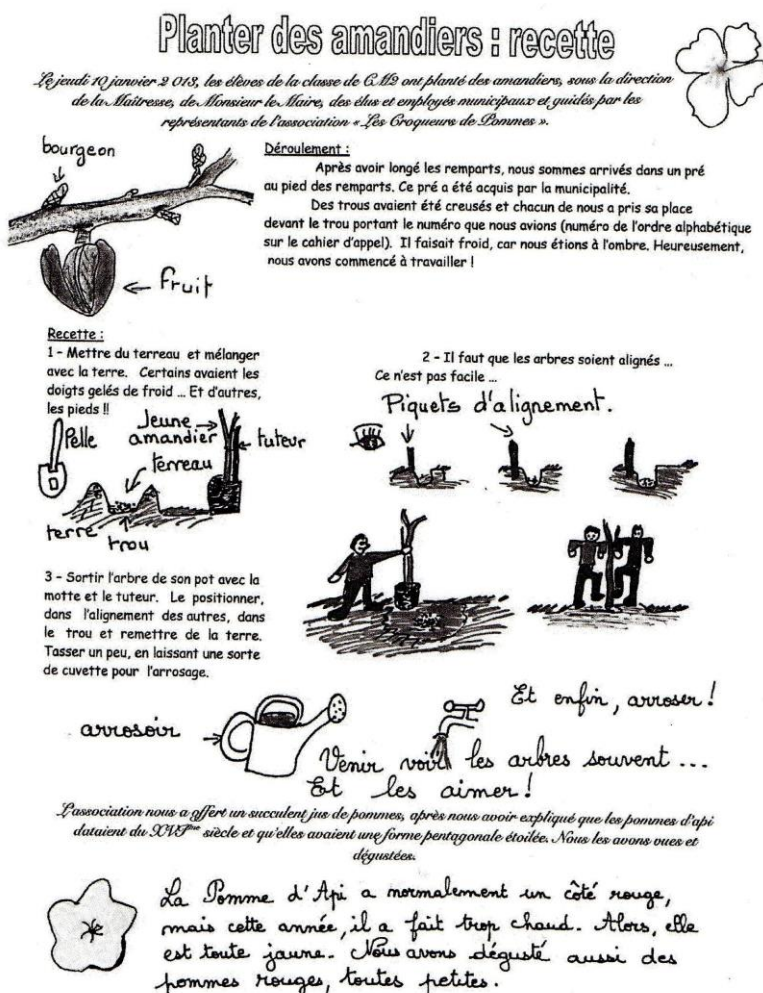 Planter des amandiers : recette
Le jeudi 10 janvier 2 013, les élèves de la classe de CM2 ont planté des amandiers, sous la direction
de la Maîtresse, de Monsieur le Maire, des élus et employés municipaux et guidés par les
représentants de l'association « Les Croqueurs de Pommes ».
bourgeon
fruit
Déroulement :
Après avoir longé les remparts, nous sommes arrivés dans un pré
au pied des remparts. Ce pré a été acquis par la municipalité.
Des trous avaient été creusés et chacun de nous a pris sa place
devant le trou portant le numéro que nous avions (numéro de l'ordre alphabétique
sur le cahier d'appel). Il faisait froid, car nous étions à l'ombre. Heureusement,
nous avons commencé à travailler !
Recette :
1 - Mettre du terreau et mélanger
avec la terre. Certains avaient les
doigts gelés de froid ... Et d'autres,
les pieds !!
Pelle
Jeune
amandier
tuteur
terreau
terre
trou
2 - Il faut que les arbres soient alignés ...
Ce n'est pas facile ...
Piquets d'alignement.
3 - Sortir l'arbre de son pot avec la
motte et le tuteur. Le positionner,
dans l'alignement des autres, dans
le trou et remettre de la terre.
Tasser un peu, en laissant une sorte
de cuvette pour l'arrosage.
arrosoir
Et enfin, arroser !
Venir voir les arbres souvent ...
Et les aimer !
L'association nous a offert un succulent jus de pommes, après nous avoir expliqué que les pommes d'api
dataient du XVIème siècle et qu'elles avaient une forme pentagonale étoilée. Nous les avons vues et
dégustées.
La Pomme d'Api a normalement un côté rouge,
mais cette année, il a fait trop chaud. Alors, elle
est toute jaune. Nous avons dégusté aussi des
pommes rouges, toutes petites.